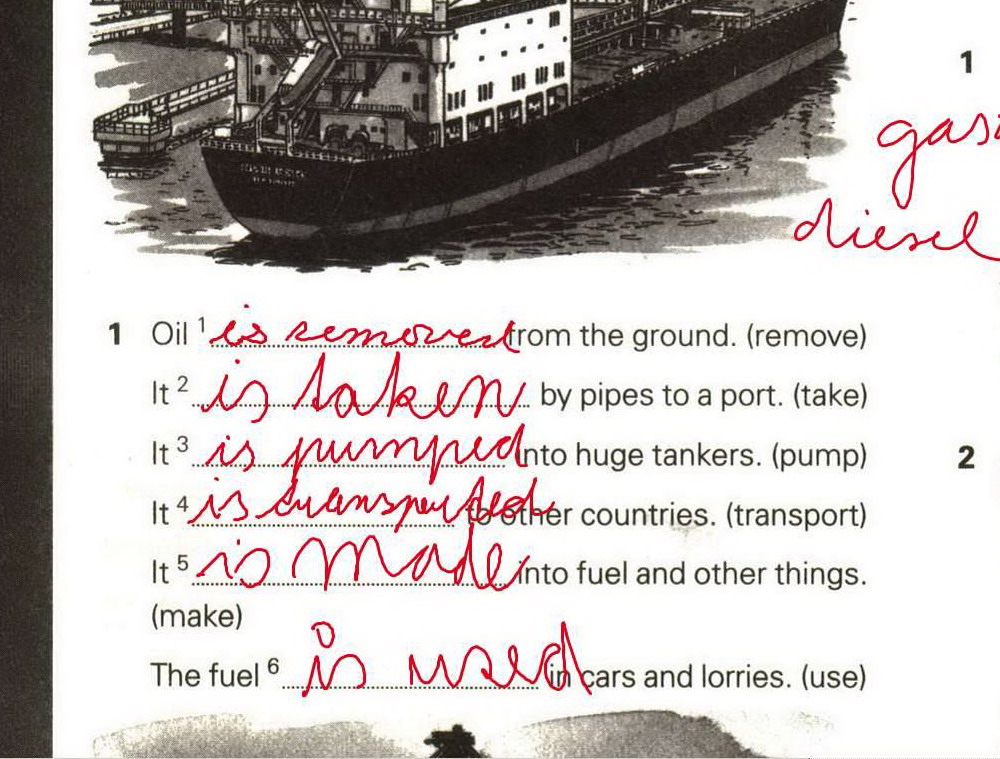 1
gasi
diesel
1 Oil ¹ is removed from the ground. (remove)
It ² is taken by pipes to a port. (take)
It ³ is pumped into huge tankers. (pump)
2
It ⁴ is transported to other countries. (transport)
It ⁵ is made into fuel and other things.
(make)
The fuel ⁶ is used in cars and lorries. (use)